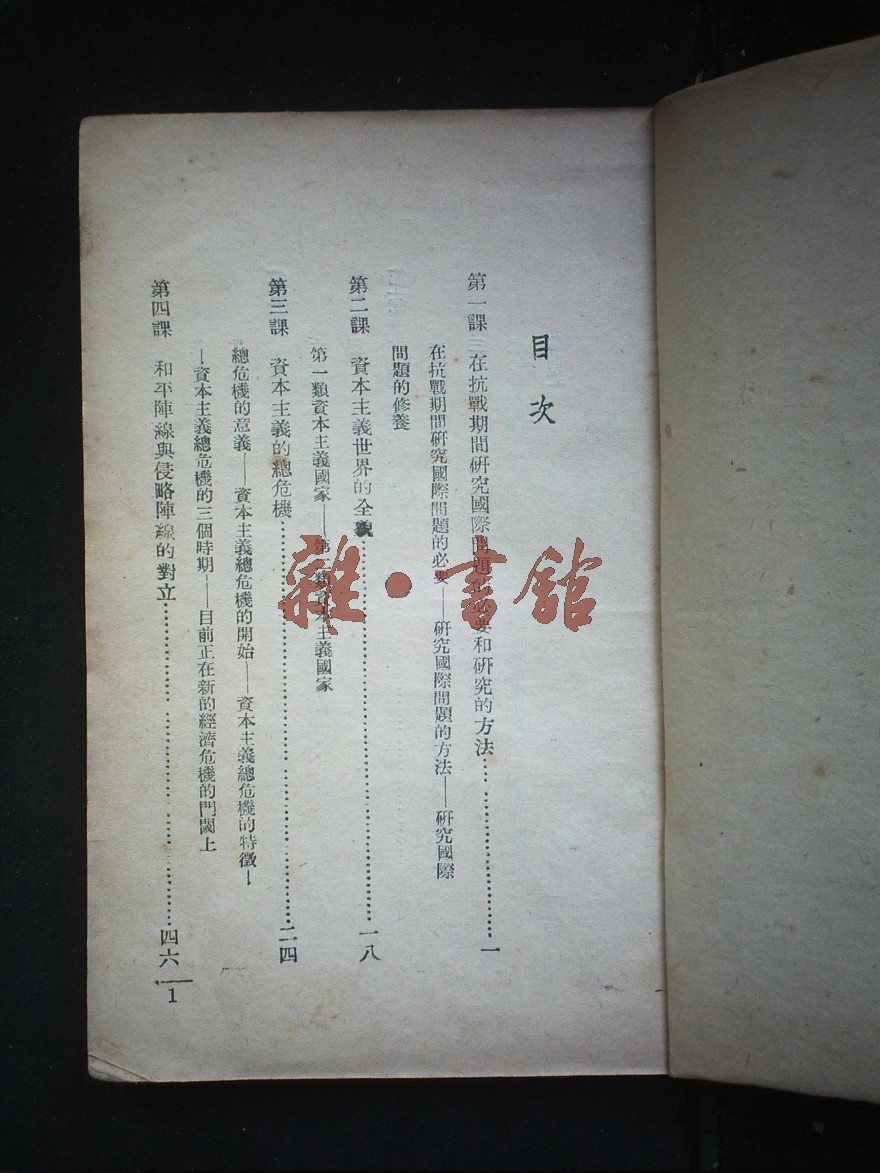 目次
第一課 在抗戰期間研究國際問題的必要和研究的方法……………………一
在抗戰期間研究國際問題的必要——研究國際問題的方法——研究國際
問題的修養
第二課 資本主義世界的全貌……………………一八
第一類資本主義國家——第二類資本主義國家
第三課 資本主義的總危機……………………二四
總危機的意義——資本主義總危機的開始——資本主義總危機的特徵—
—資本主義總危機的三個時期——目前正在新的經濟危機的門閾上
第四課 和平陣線與侵略陣線的對立……………………四六
1
雜·書館